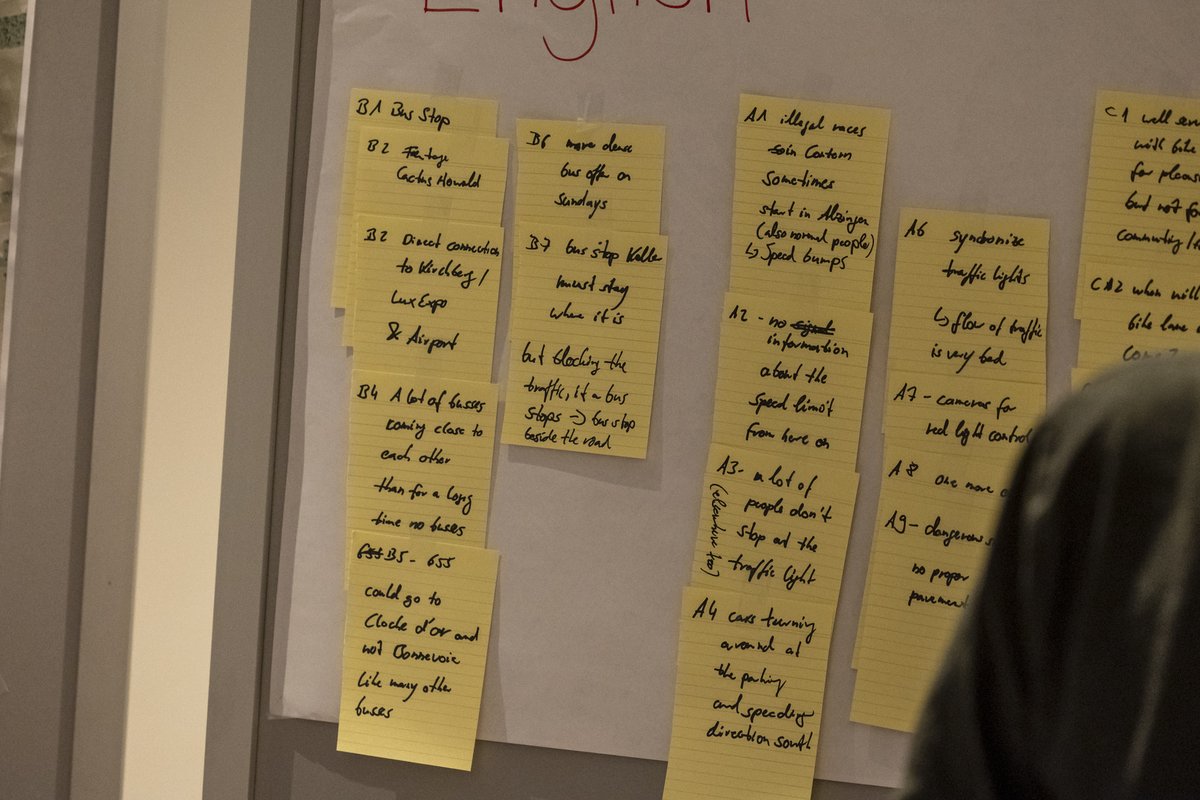 English
B1 Bus Stop
B2
Cactus Howald
B2 Direct connection
to Kirchberg/
Lux Expo
& Airport
B4 A lot of busses
coming close to
each other
than for a long
time no buses
B5 - 655
could go to
Cloche d'or and
not Bonnevoie
like many other
buses
B6 more dense
bus offer on
sundays
B7 bus stop
must stay
where it is
but blocking the
traffic, if a bus
stops -> bus stop
beside the road
A1 illegal races
sometimes
start in Alzingen
(also normal people)
↳ Speed bumps
A2 - no
information
about the
speed limit
from here on
A3 - a lot of
people don't
stop at the
traffic light
(elsewhere too)
A4 cars turning
around at
the parking
and speeding
direction south
A6 synchronize
traffic lights
↳ flow of traffic
is very bad
A7 - cameras for
red light control
A8 one more
A9 - dangerous
no proper
pavement
C1 well
with bike
for
but not
commuting/
CA2 when will
bike lane